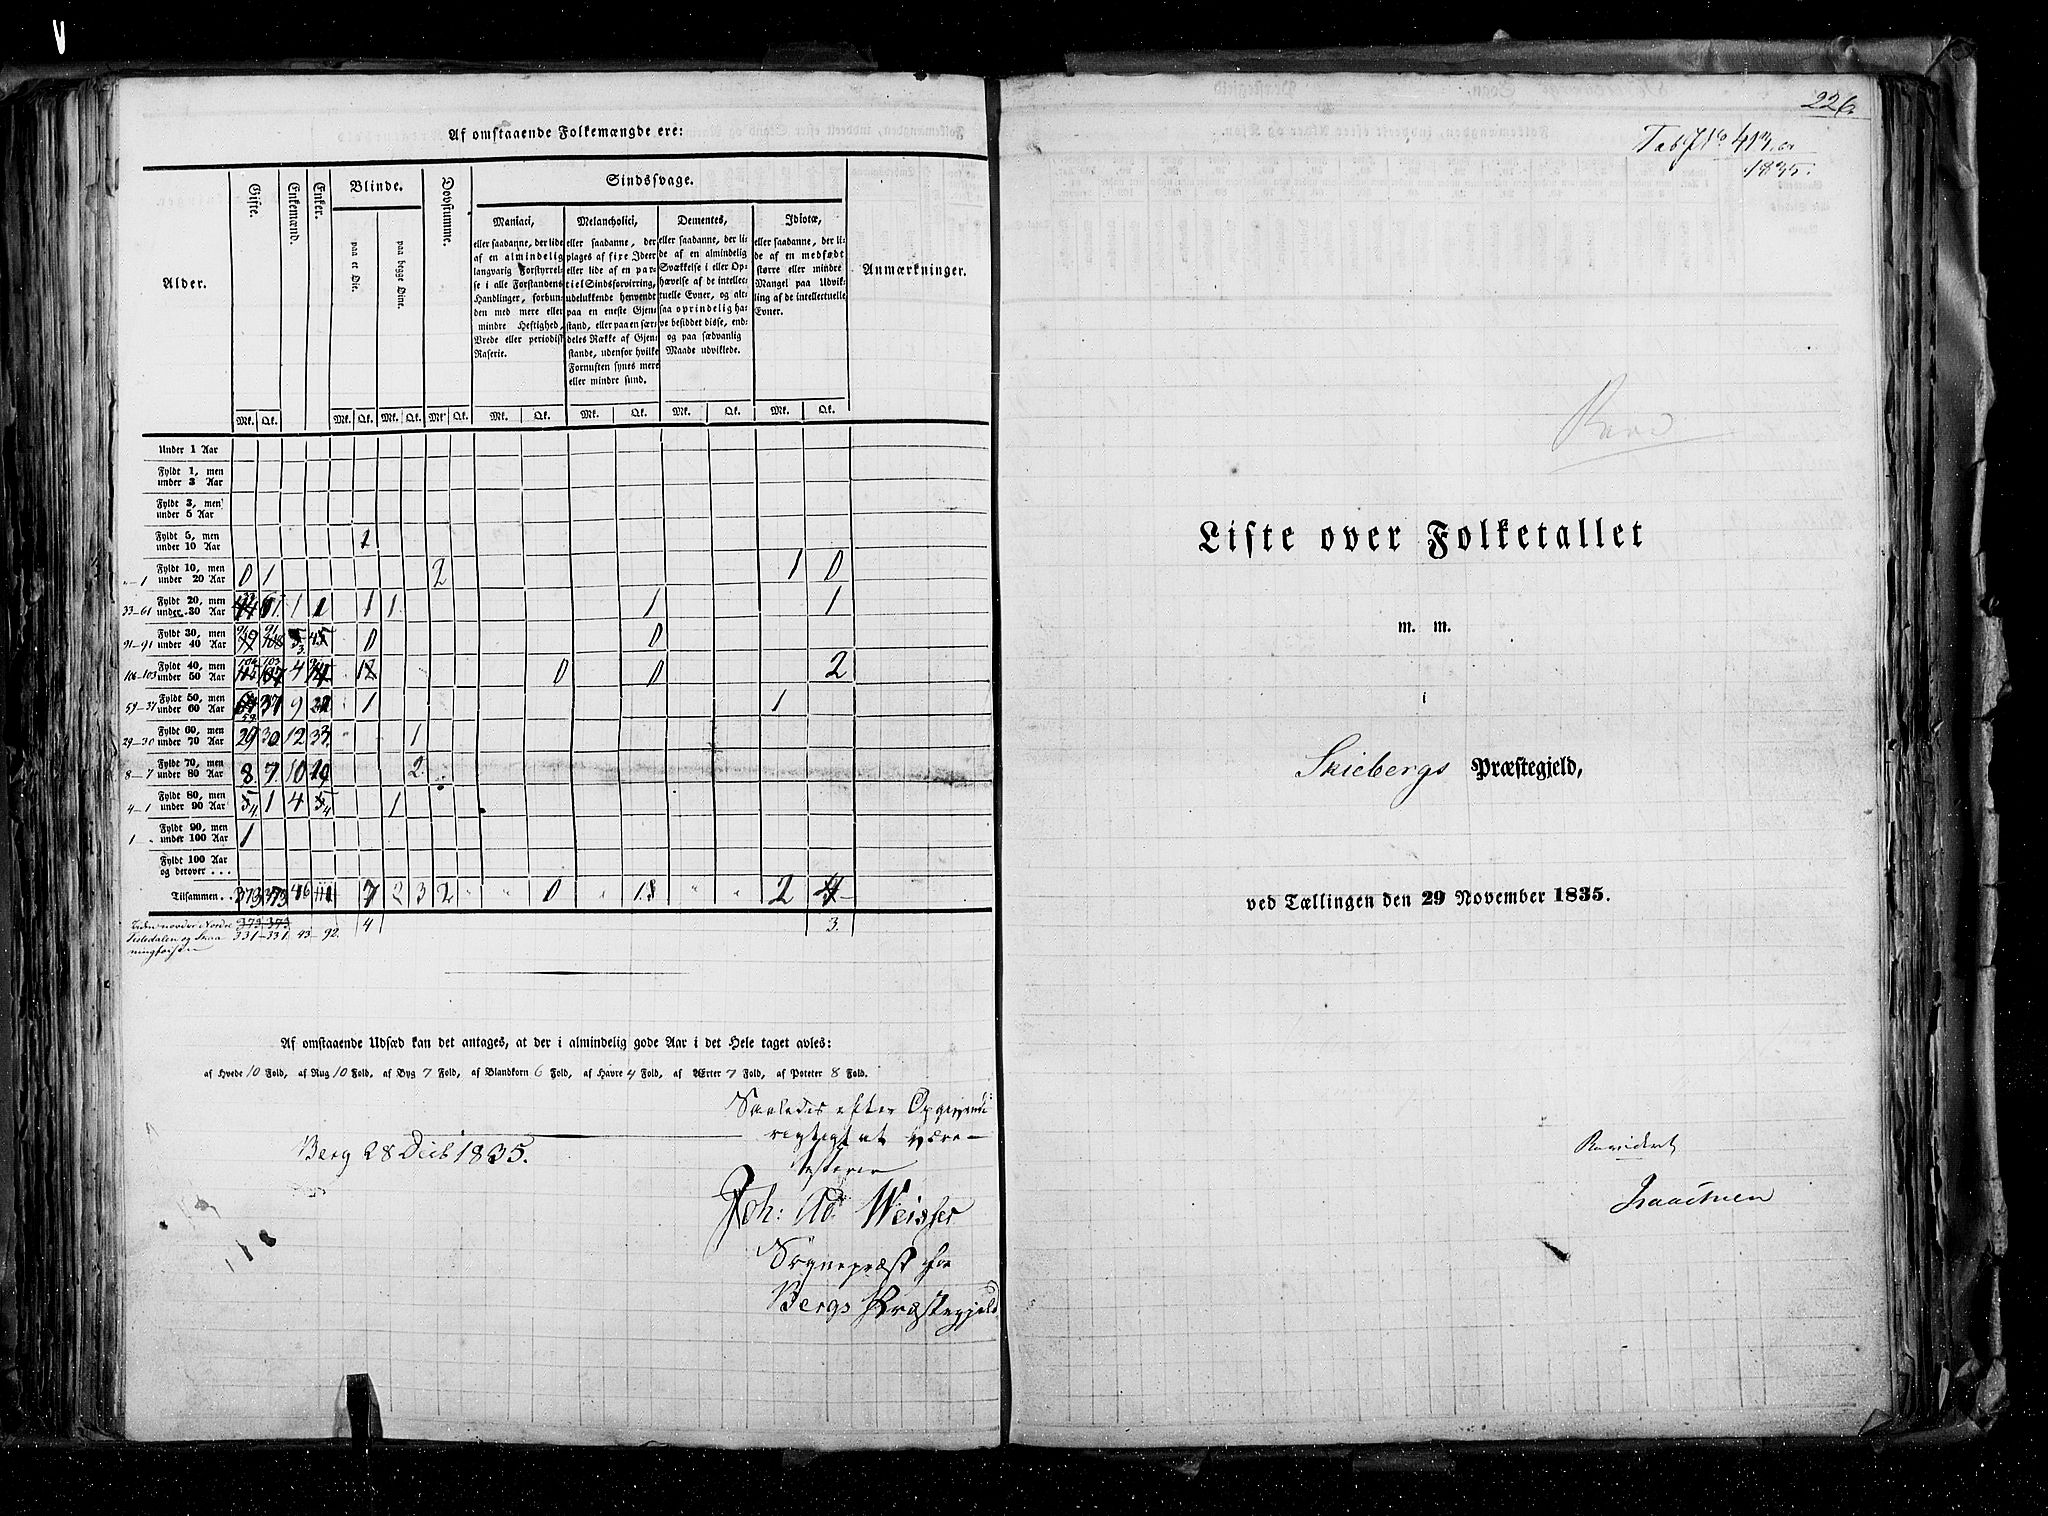 V
Af omstaaende Folkemængde ere:
Alder.
Gifte.
Enkemænd.
Enker.
Blinde.
paa et Øie.
paa begge Øine.
Dovstumme.
Sindssvage.
Maniaci,
eller saadanne, der lide
af en almindelig
langvarig Forstyrrel-
se i alle Forstandens
Handlinger, forbun-
den med mere eller
mindre Heftighed,
Vrede eller periodisk
Raserie.
Melancholici,
eller saadanne, der
plages af fixe Ideer
eller lide af en par-
tiel Sindsforvirring,
udelukkende henvendt
paa en eneste Gjen-
stand, eller paa en sær-
deles Række af Gjen-
stande, udenfor hvilke
Fornuften synes mere
eller mindre sund.
Dementes,
eller saadanne, der li-
de af en almindelig
Svækkelse i eller Op-
hævelse af de intellec-
tuelle Evner, og alt-
saa oprindelig ha-
ve besiddet disse, end-
og paa sædvanlig
Maade udviklede.
Idiotæ,
eller saadanne, der li-
de af en medfødt
større eller mindre
Mangel paa Udvik-
ling af de intellectuelle
Evner.
Anmærkninger.
Mk. Qk. Mk. Qk. Mk. Qk. Mk. Qk. Mk. Qk. Mk. Qk. Mk. Qk. Mk. Qk.
Under 1 Aar
Fyldt 1, men
under 3 Aar
Fyldt 3, men
under 5 Aar
Fyldt 5, men
under 10 Aar
Fyldt 10, men
under 20 Aar 0 1 2 1 0
33-61 Fyldt 20, men
under 30 Aar 1 1 1 1 1
91-91 Fyldt 30, men
under 40 Aar 0 0
106-103 Fyldt 40, men
under 50 Aar 4 0 0 2
59-37 Fyldt 50, men
under 60 Aar 37 9 1 1
29-30 Fyldt 60, men
under 70 Aar 29 30 12 33 1
8-7 Fyldt 70, men
under 80 Aar 8 7 10 19 2
4-1 Fyldt 80, men
under 90 Aar 5 4 1 4 5 4 1
1 Fyldt 90, men
under 100 Aar 1
Fyldt 100 Aar
og derover . . .
Tilsammen . . 373 373 46 111 7 2 3 2 " " 0 " " " 2 4
373 373
331-331 43-92. 4 3.
Af omstaaende Udsæd kan det antages, at der i almindelig gode Aar i det Hele taget avles:
af Hvede 10 Fold, af Rug 10 Fold, af Byg 7 Fold, af Blandkorn 6 Fold, af Havre 4 Fold, af Ærter 7 Fold, af Poteter 8 Fold.
Saaledes efter Opgivende
rigtigt at være
testerer
Berg 28 Decb 1835.
Joh: Ad. Weisser
Sognepræst for
Bergs Præstegjeld
226
Tab No 413
1835.
Liste over Folketallet
m. m.
i
Skiebergs Præstegjeld,
ved Tællingen den 29 November 1835.
Revideret
Isaachsen